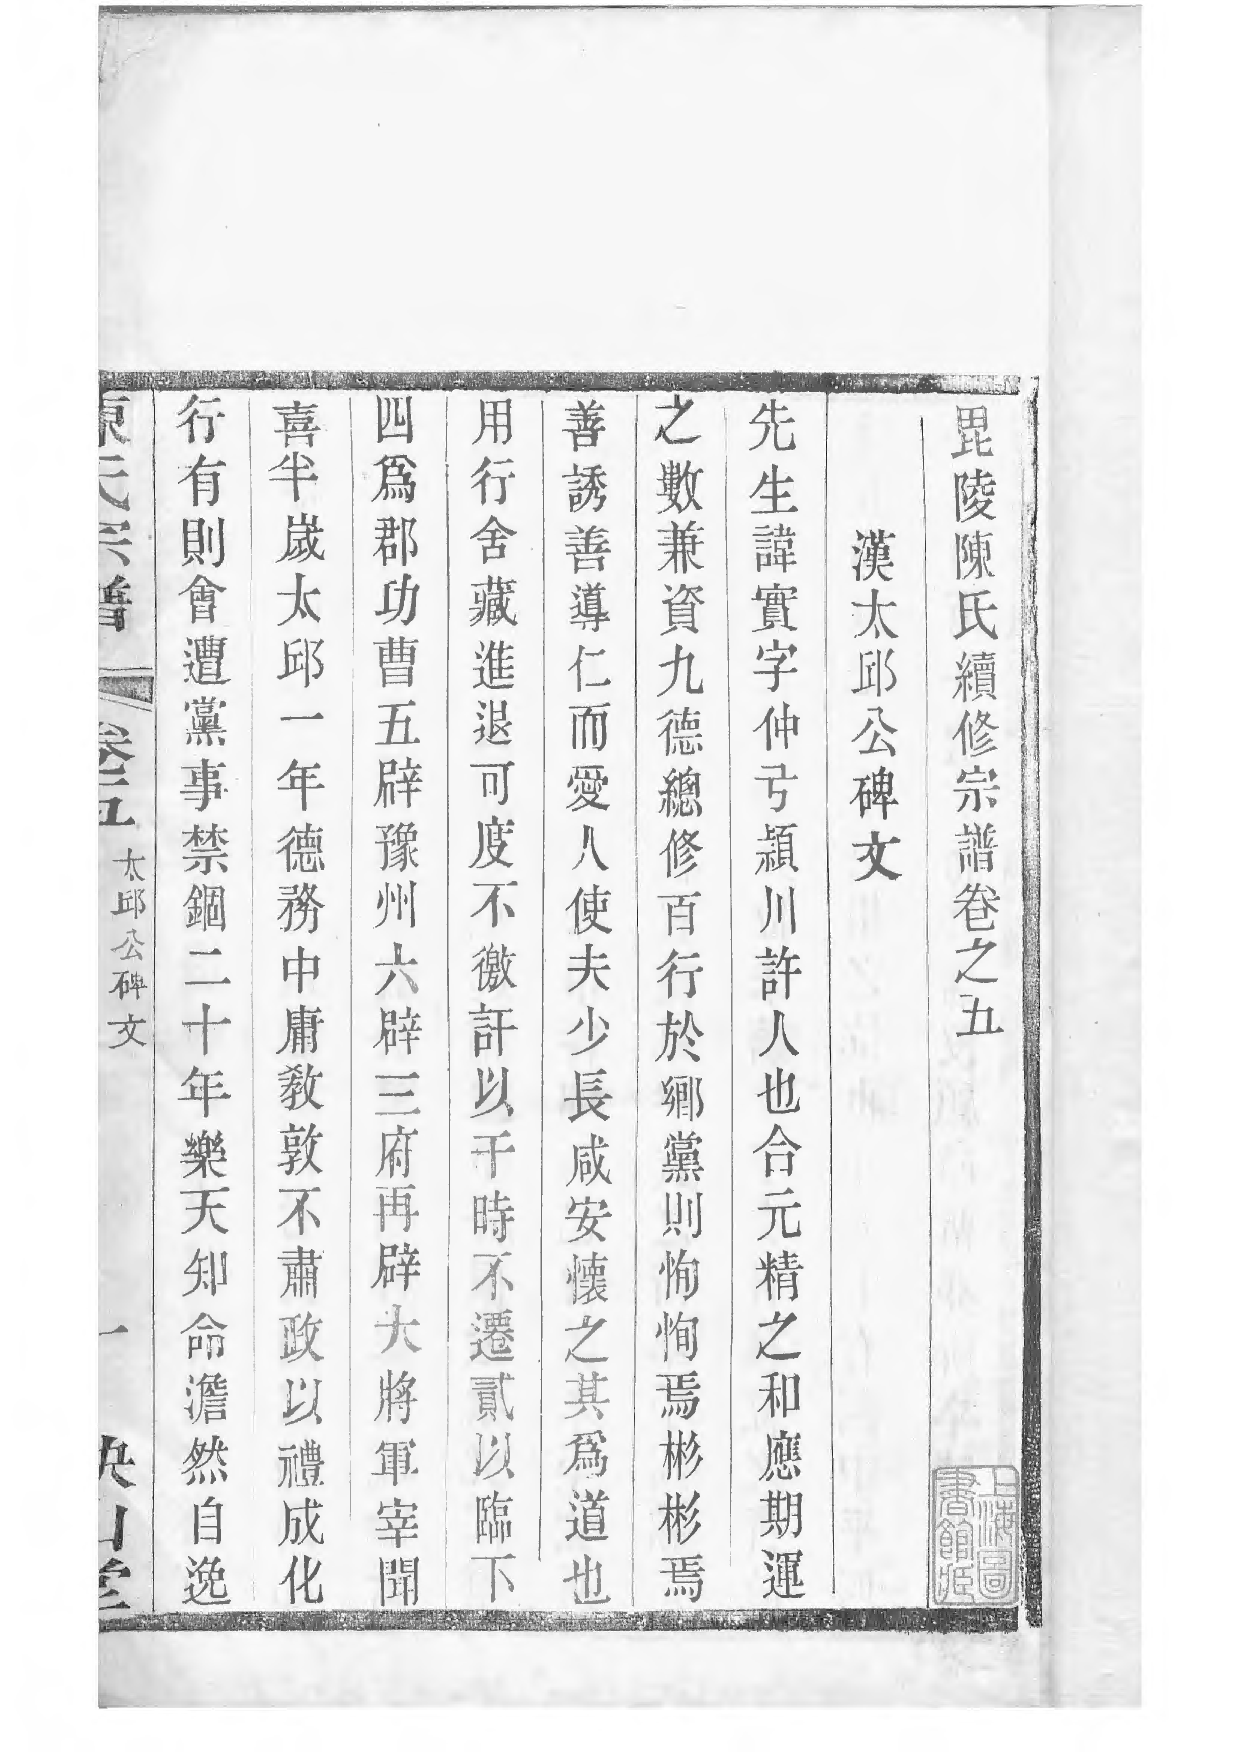 毘陵陳氏續修宗譜卷之五
漢太邱公碑文
先生諱實字仲弓潁川許人也合元精之和應期運
之數兼資九德總修百行於鄉黨則恂恂焉彬彬焉
善誘善導仁而愛人使夫少長咸安懷之其為道也
用行舍藏進退可度不徼訐以干時不遷貳以臨下
四為郡功曹五辟豫州六辟三府再辟大將軍宰聞
喜半歲太邱一年德務中庸教敦不肅政以禮成化
行有則會遭黨事禁錮二十年樂天知命澹然自逸
陳氏宗譜 卷五 太邱公碑文 一 映山堂
上海圖書館藏